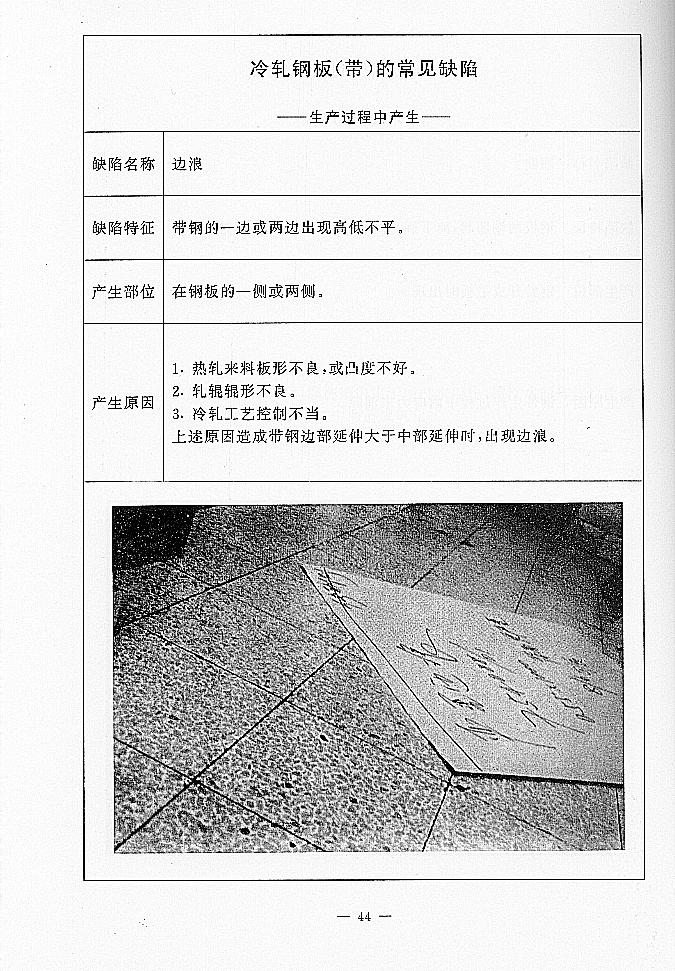 冷轧钢板(带)的常见缺陷
——生产过程中产生——
缺陷名称 边浪
缺陷特征 带钢的一边或两边出现高低不平。
产生部位 在钢板的一侧或两侧。
产生原因
1. 热轧来料板形不良,或凸度不好。
2. 轧辊辊形不良。
3. 冷轧工艺控制不当。
上述原因造成带钢边部延伸大于中部延伸时,出现边浪。
— 44 —